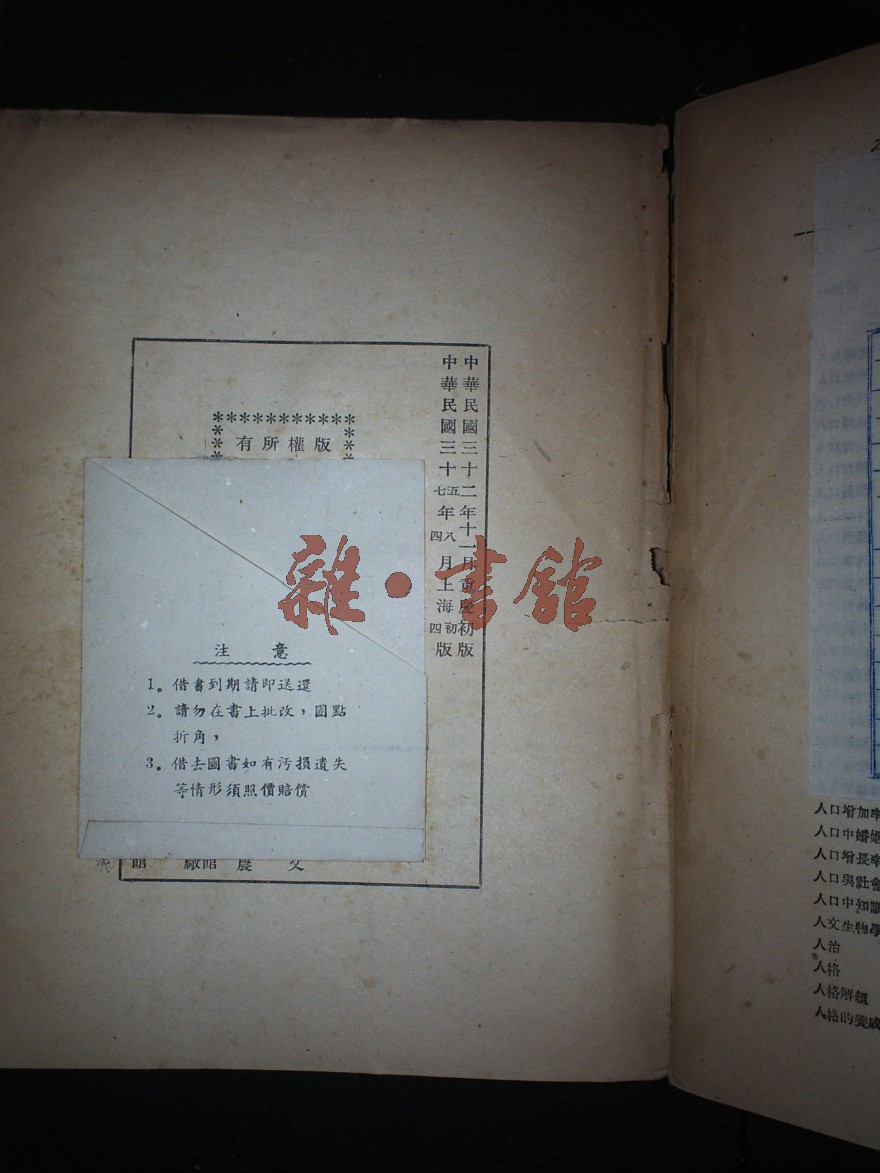 中華民國三十二年十一月重慶初版
中華民國三十五七年八四月上海初四版
版權所有
注 意
1。借書到期請即送還
2。請勿在書上批改，圈點
折角，
3。借去圖書如有污損遺失
等情形須照價賠償
館 廠 館 農 文
雜·書館
人口增加率
人口中婚姻
人口增長率
人口與社會
人口中知識
人文生物學
人治
人格
人格解組
人格的變成